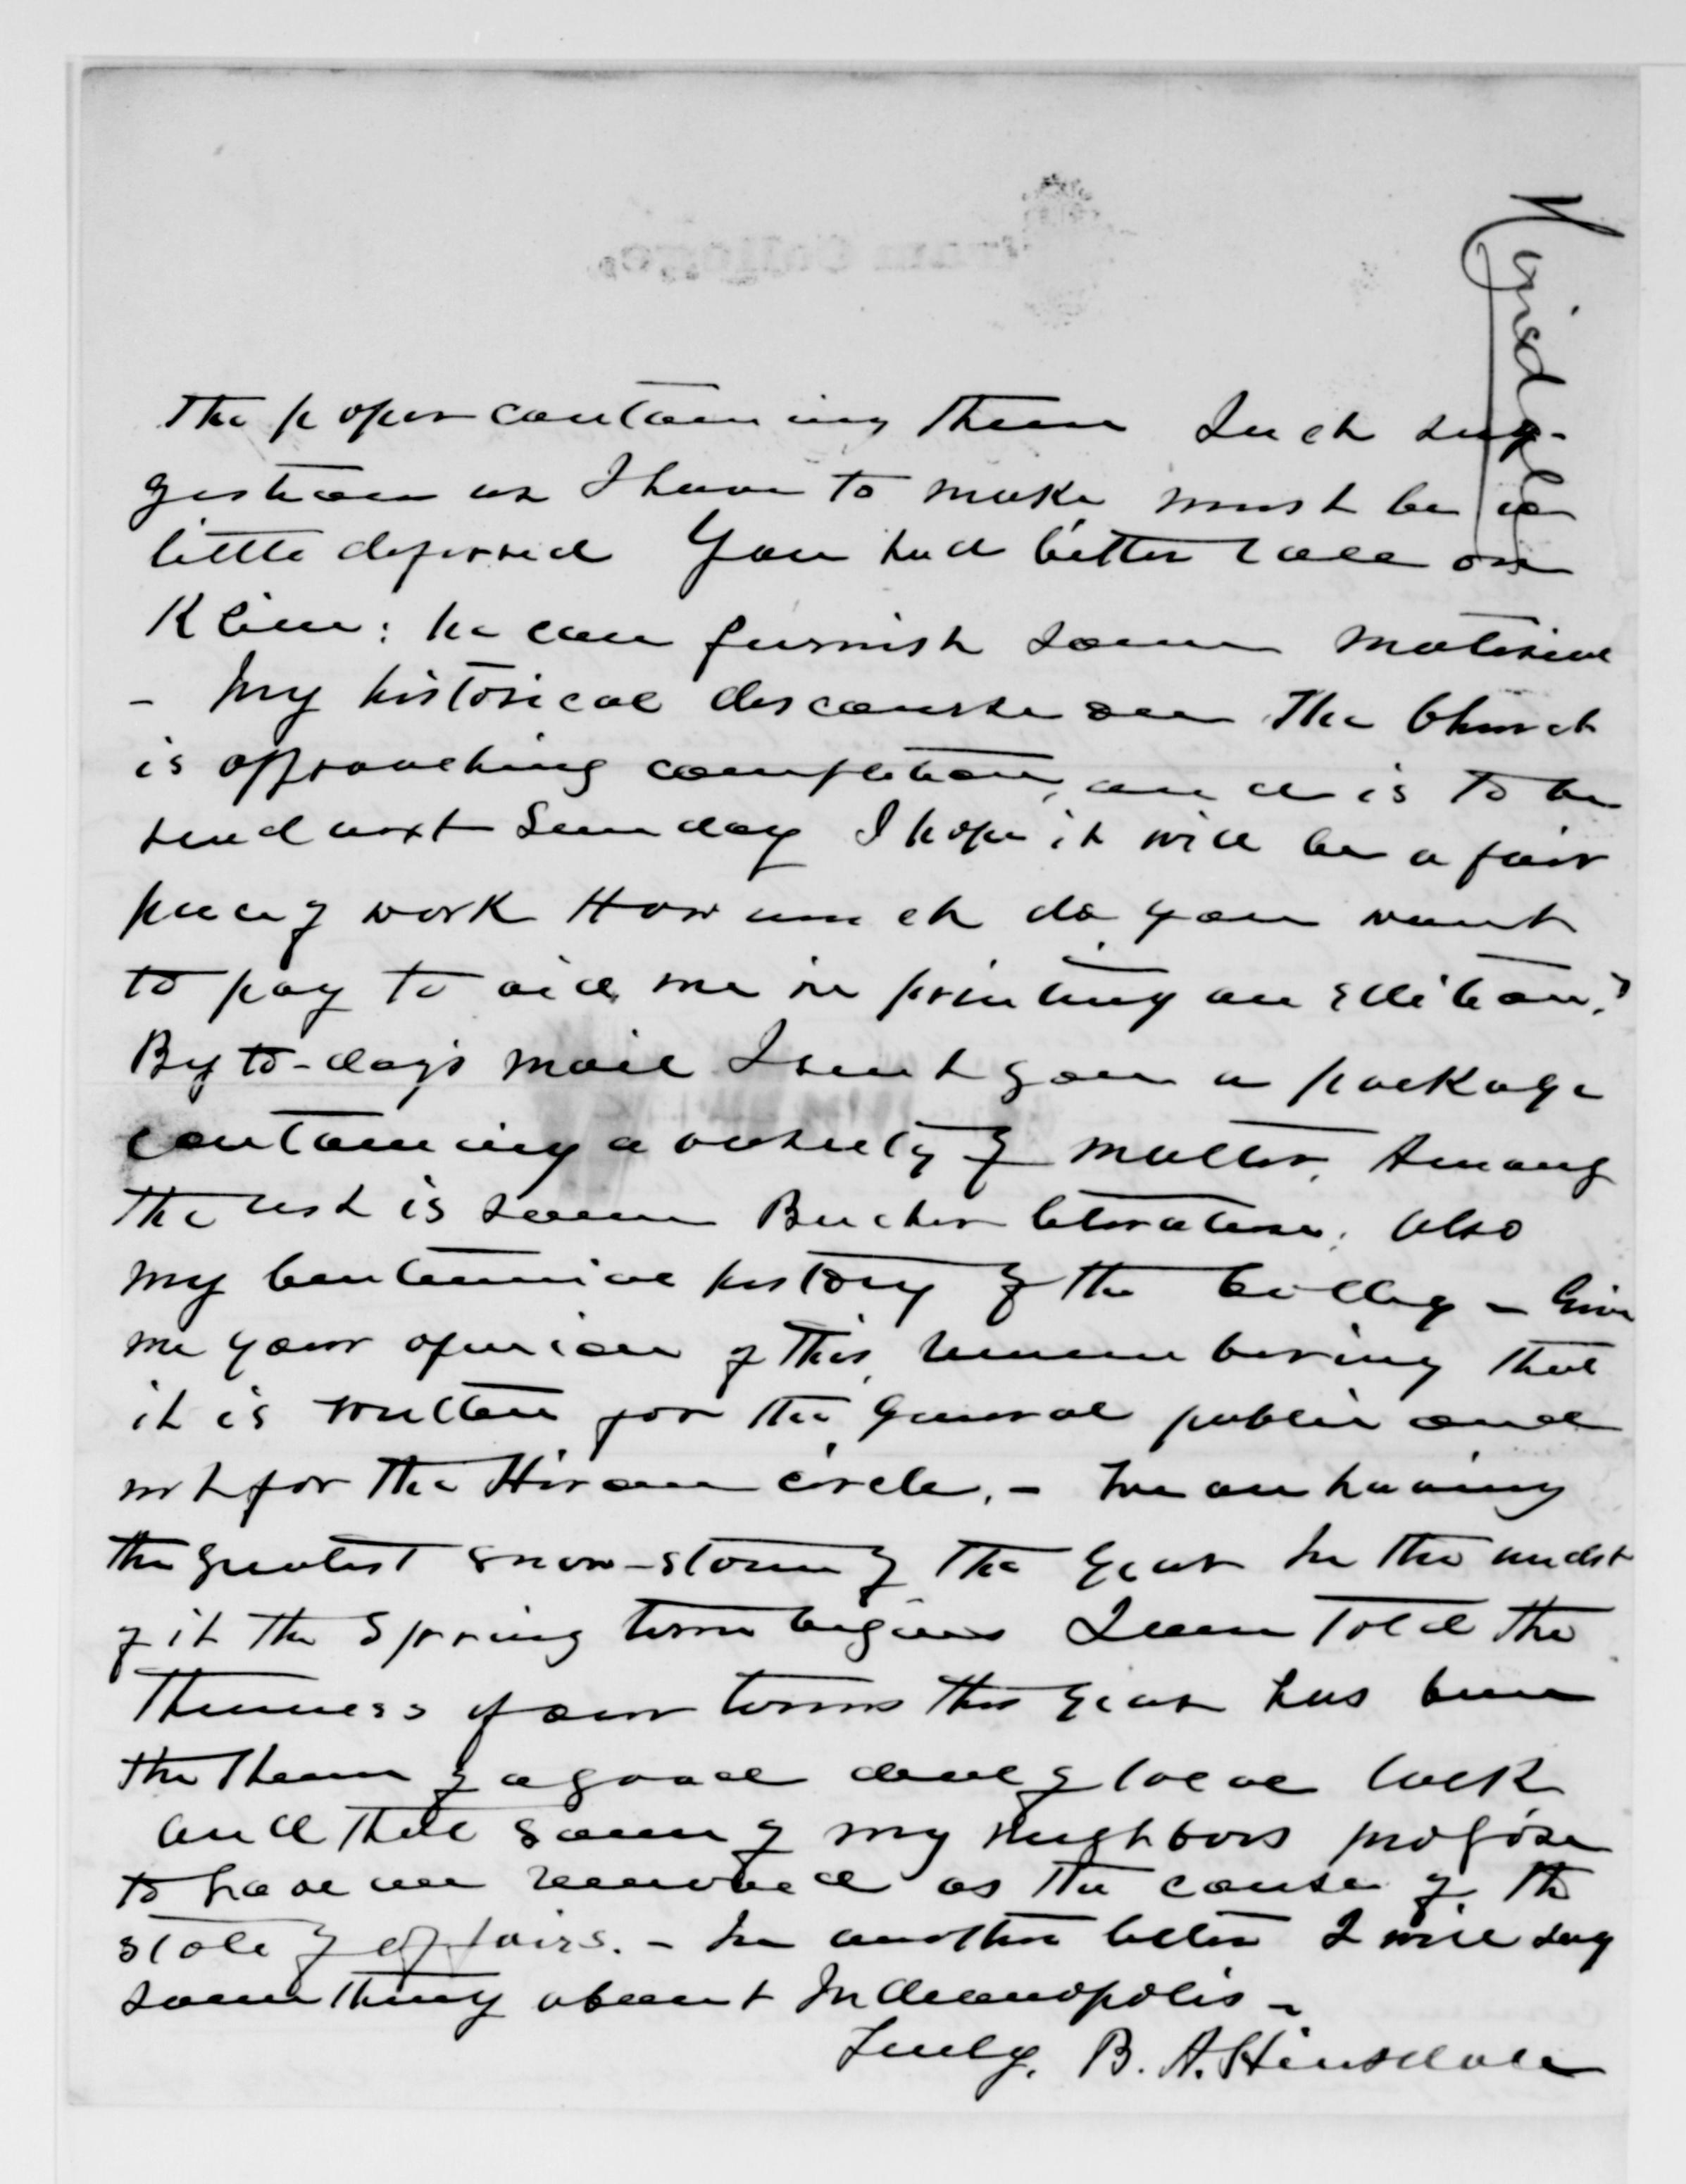 Hinsdale
the paper containing them Such sug-
gestions as I have to make must be a
little deferred You had better call on
Kline: he can furnish some material
- My historical discourse on the Church
is approaching completion, and is to be
read next Sunday I hope it will be a fair
piece of work How much do you want
to pay to aid me in printing an edition?
By to-day's mail I send you a package
containing a variety of matter. Among
the rest is some Beecher literature; also
my Centennial history of the College - Give
me your opinion of this, remembering that
it is written for the general public and
not for the Hiram circle. - We are having
the greatest snow-storm of the year In the midst
of it the Spring term begins I am told the
thinness of our terms this year has been
the theme of a good deal of local talk
and that some of my neighbors propose
to have me removed as the cause of the
state of affairs. - In another letter I will say
something about Indianapolis -
Truly, B. A. Hinsdale